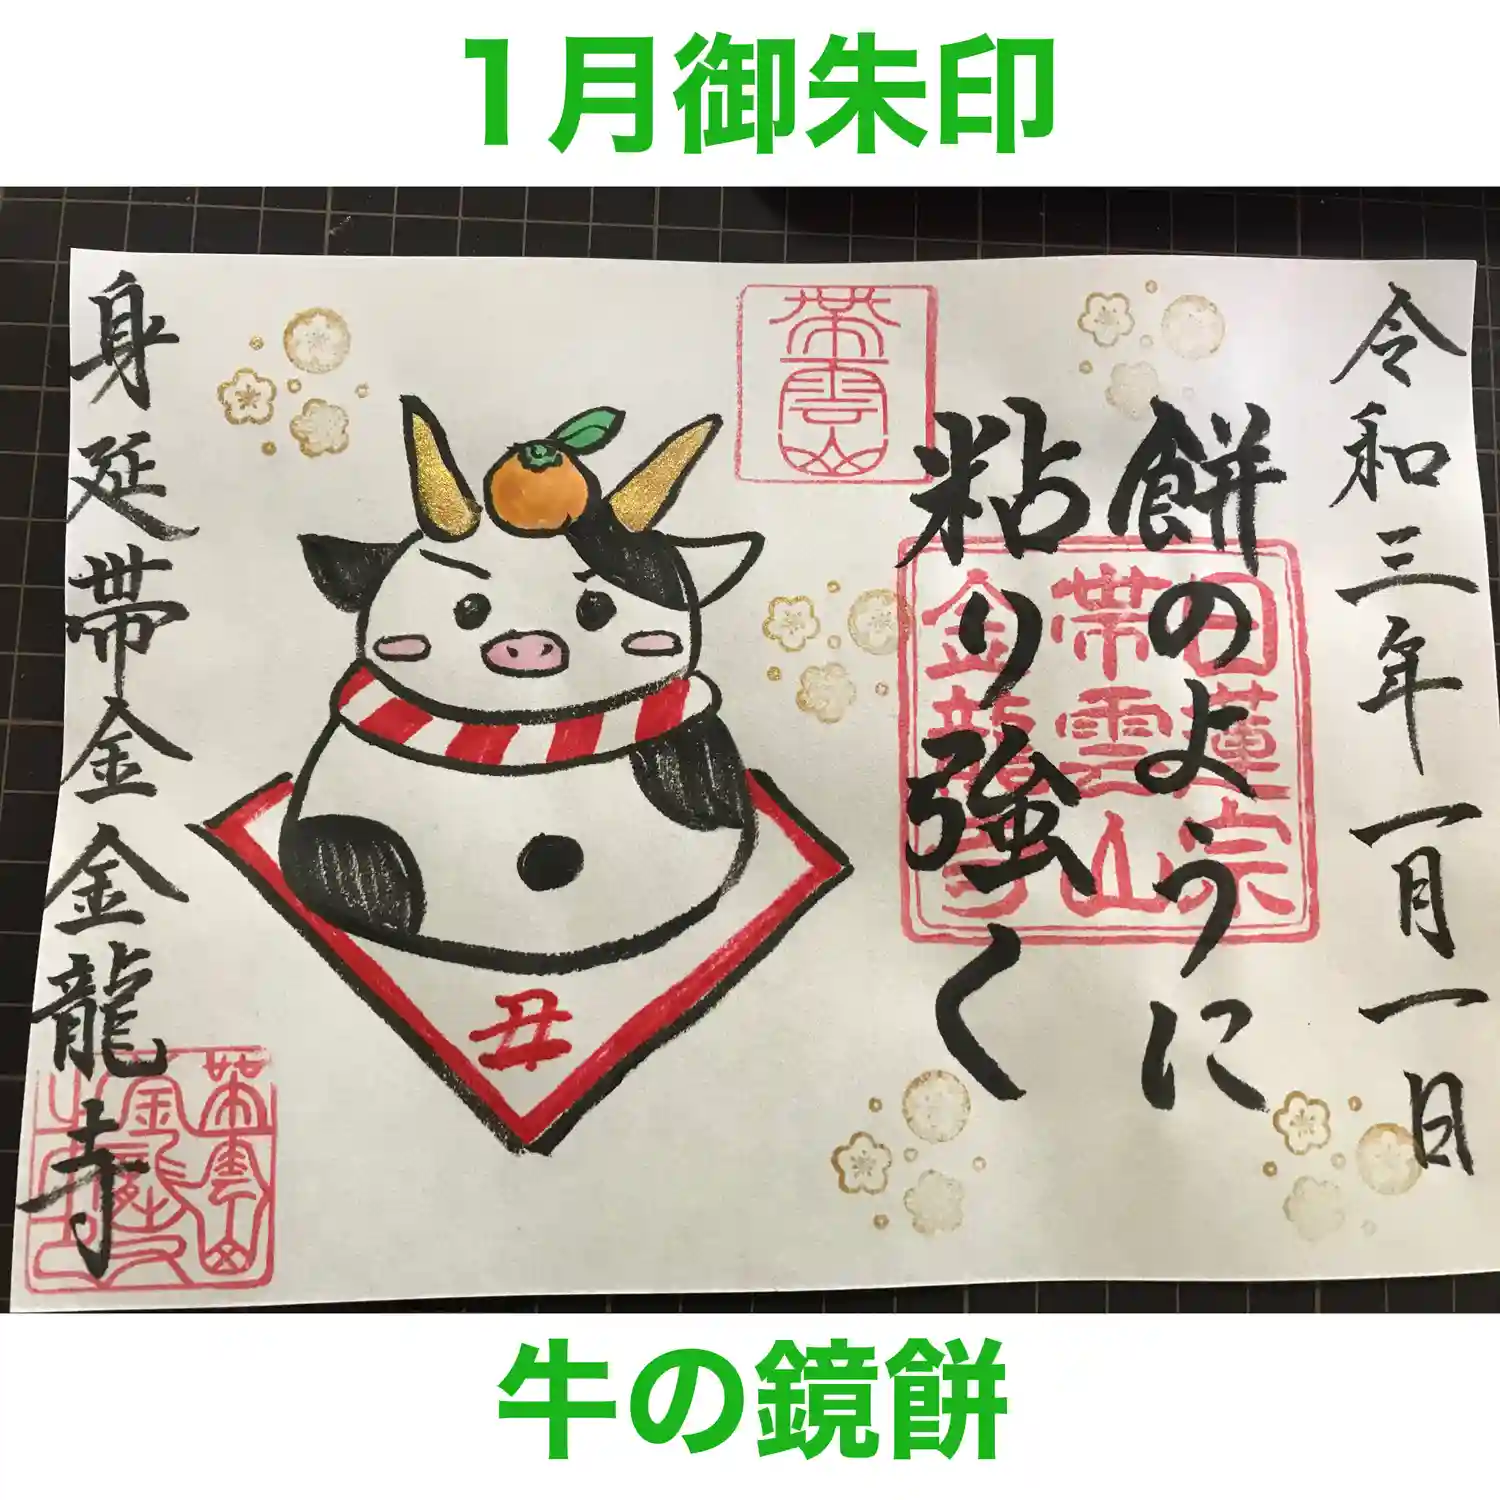 1月御朱印
令和三年一月一日
餅のように
粘り強く
帯雲山
日蓮宗
帯雲山
金龍寺
丑
身延帯金金龍寺
帯雲山
牛の鏡餅